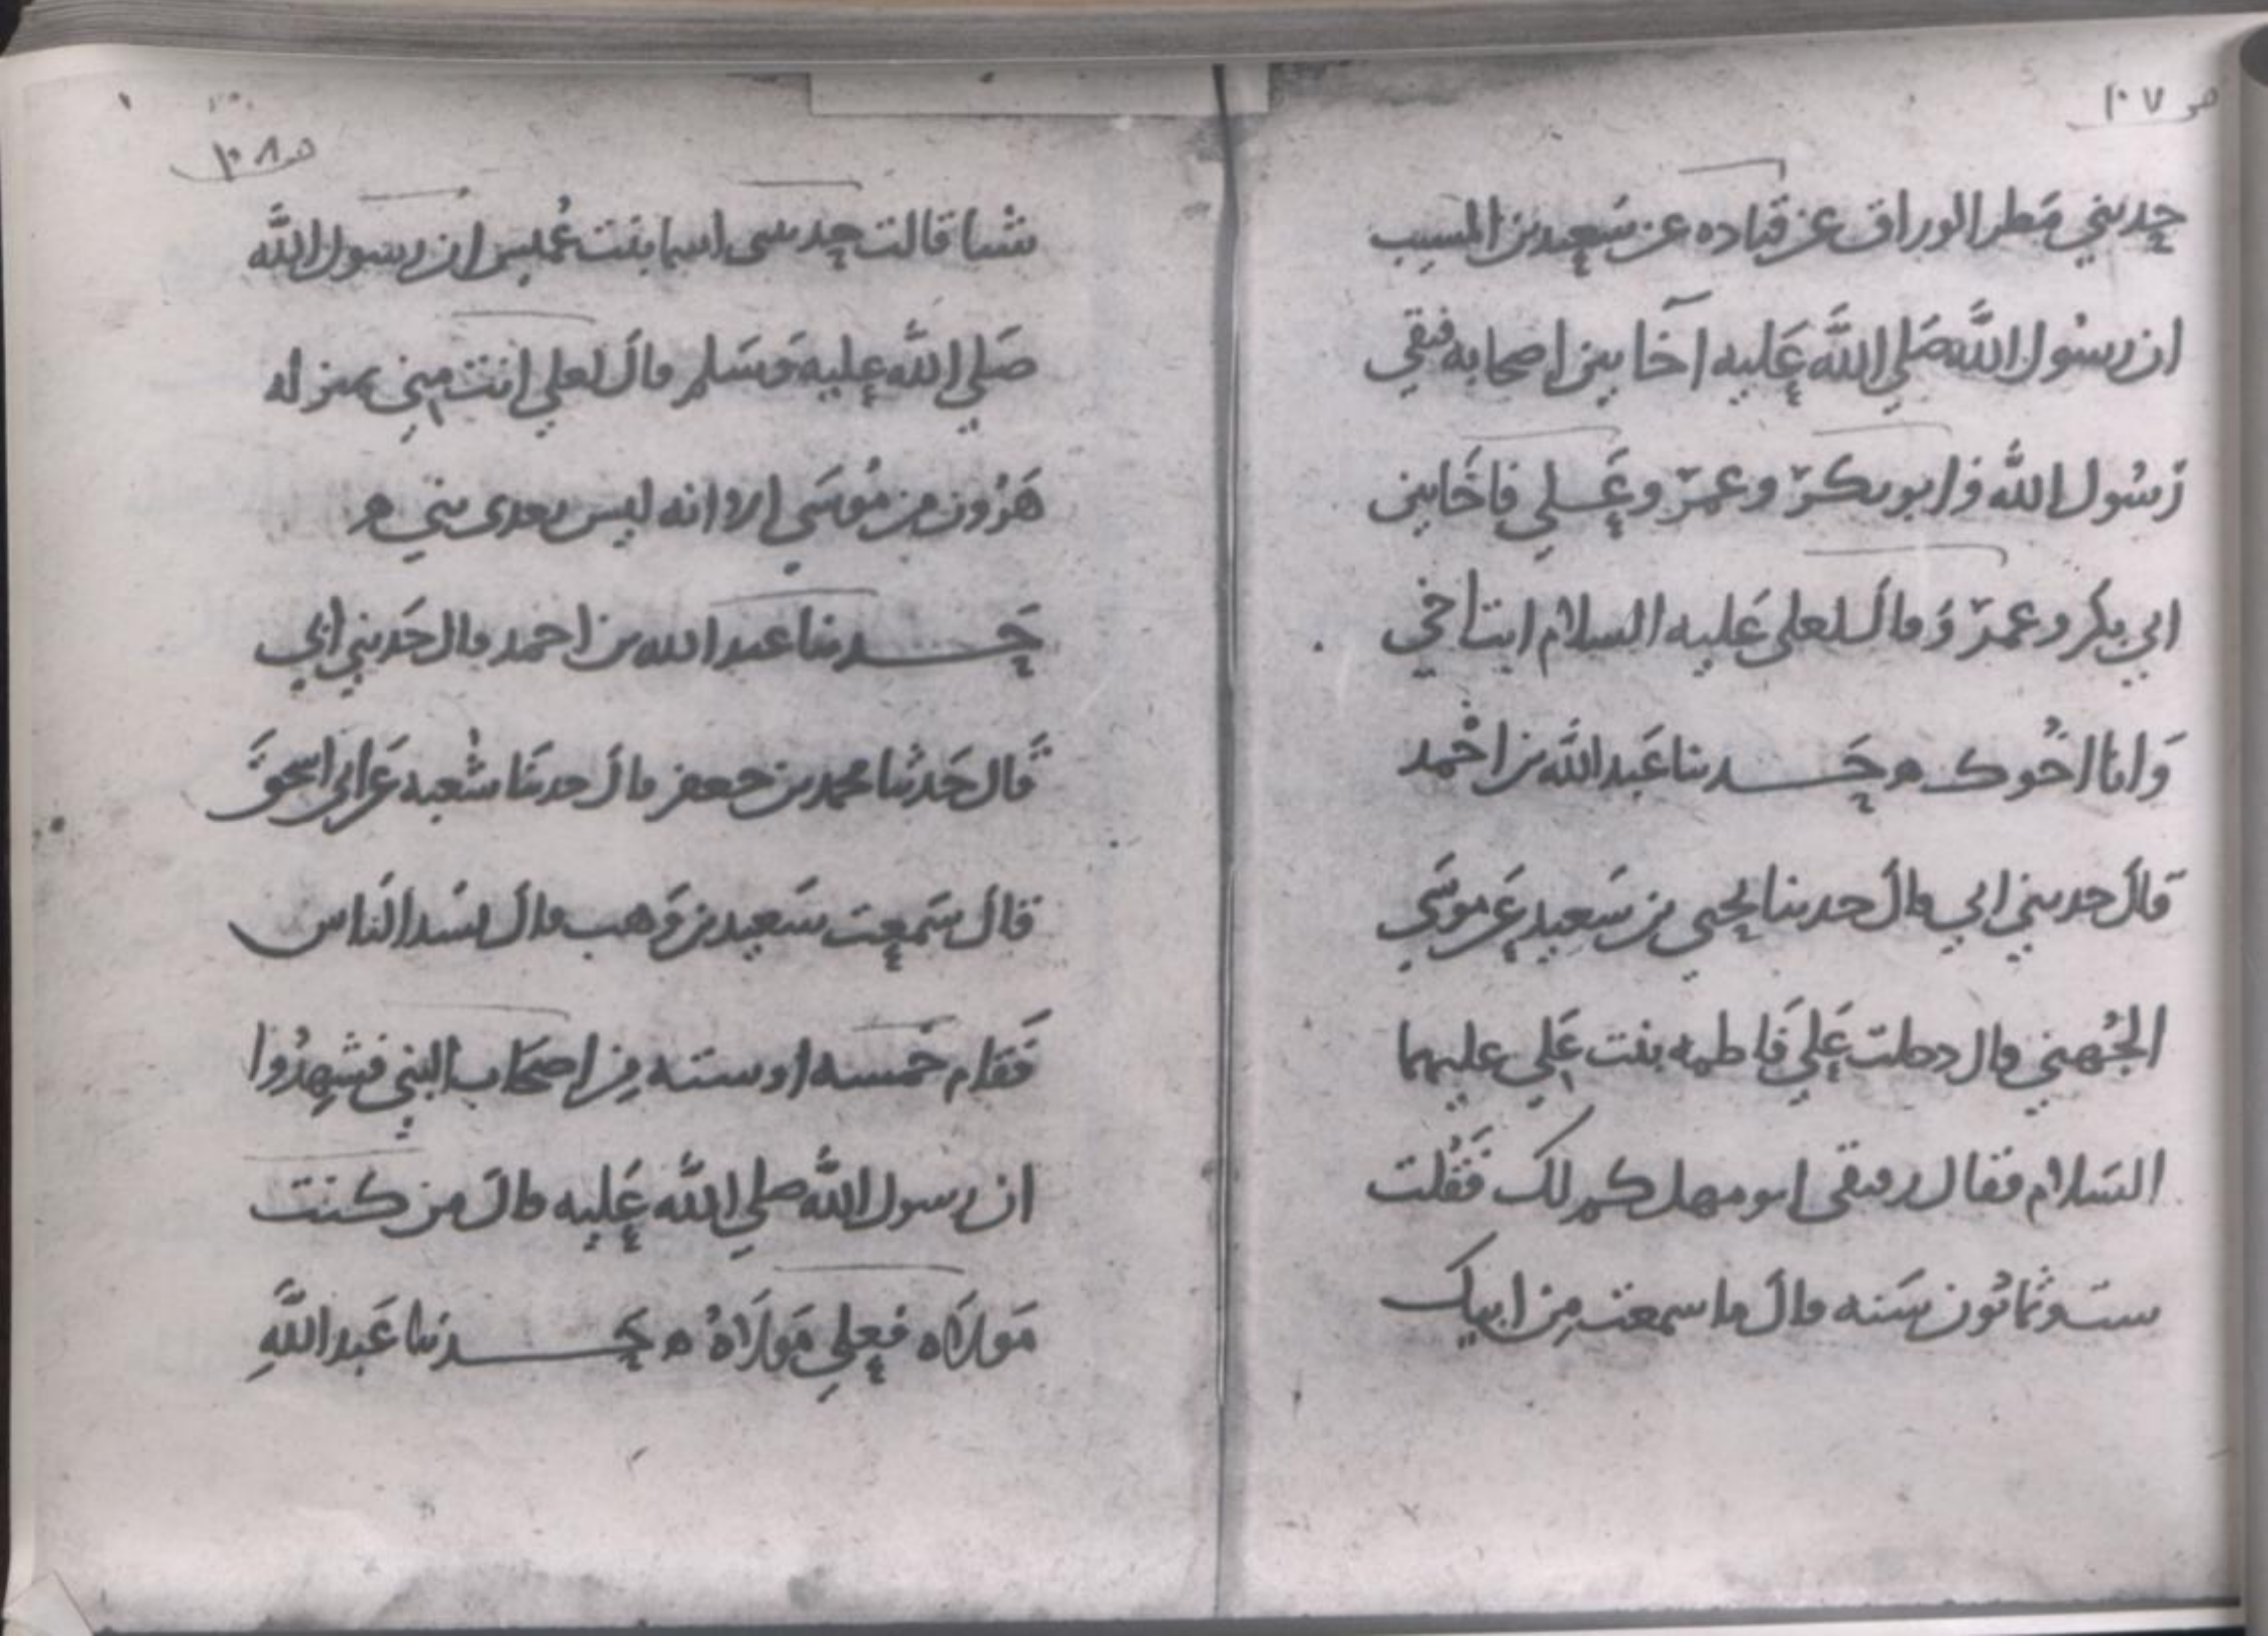 ص ١٠٧
حدثني مطر الوراق عن قتاده عن سعيد بن المسيب
ان رسول الله صلى الله عليه آخا بين اصحابه فبقي
رسول الله و ابو بكر وعمر وعلي فاخا بين
ابي بكر وعمر وقال لعلى عليه السلام انت اخي
وانا اخوك ه حدثنا عبد الله بن احمد
قال حدثني ابي قال حدثنا يحيى بن سعيد عن موسى
الجهني قال دخلت علي فاطمه بنت علي عليهما
السلام فقال رفيقى ابو مهل كم لك فقلت
ست وثمانون سنه قال ما سمعت من ابيك
ص ١٠٨
شيا قالت حدثتنى اسما بنت عميس ان رسول الله
صلي الله عليه وسلم قال لعلي انت مني بمنزله
هرون من موسي الا انه ليس بعدى نبي ه
حدثنا عبد الله بن احمد قال حدثني ابي
قال حدثنا محمد بن جعفر قال حدثنا شعبه عن ابي اسحق
قال سمعت سعيد بن وهب قال نشد الناس
فقام خمسه او سته من اصحاب النبي فشهدوا
ان رسول الله صلي الله عليه قال من كنت
مولاه فعلي مولاه ه حدثنا عبد الله